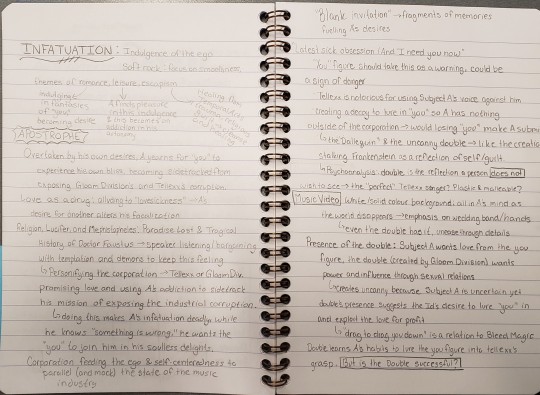 INFATUATION: Indulgence of the ego
Soft rock: focus on smoothness,
themes of romance, leisure, escapism
indulgence
in fantasies
of "you"
becoming desire
A finds pleasure
in this indulgence
& his becomes
addiction in his
APOSTROPHE
Overtaken by his own desires, A yearns for "you" to
experience his own bliss, becoming sidetracked from
exposing Gloam Divisions and Tellexx corruption
Love as a drug: alluding to "lovesickness" → A's
desire for another alters his focalization
Religion, Lucifer, and Mephistopheles. Paradise Lost & Tragical
History of Doctor Faustus → speaker listening/bargaining
with temptation and demons to keep this feeling
↳ Personifying the corporation → Tellexx or Gloam Div.
promising love and using A's addiction to sidetrack
his mission of exposing the industrial corruption.
↳ doing this makes A's infatuation deadly, while
he knows "something is wrong," he wants the
"you" to join him in his soulless delights.
Corporation feeding the ego & self-centeredness to
parallel (and mock) the state of the music
industry
"Blank invitation" → fragments of memories
fuelling A's desires
Latest sick obsession (And "I need you now"
"You" figure should take this as a warning, could be
a sign of danger
Tellexx is notorious for using Subject A's voice against him
creating a decoy to lure in "you" so A has nothing
outside of the corporation → would losing "you" make A submit
↳ the Dalleguin & the uncanny double → like the creation
stalking Frankenstein as a reflection of self/guilt.
↳ Psychoanalysis: double is the reflection a person does not
wish to see → the "perfect" Tellexx singer? Plastic & malleable?
Music Video: White/solid colour background, all in A's mind as
the world disappears → emphasis on wedding band/hands
↳ even the double has it, unease through details
Presence of the double: Subject A wants love from the you
figure, the double (created by Gloam Division) wants
power and influence through sexual relations
↳ creates uncanny because Subject A is uncertain yet
double's presence suggests the Id's desire to lure "you" in
and exploit the love for profit
↳ "drag to drag you down" is a relation to Bleed Magic
Double learns A's habits to lure the you figure into Tellexx's
grasp. But is the Double successful?